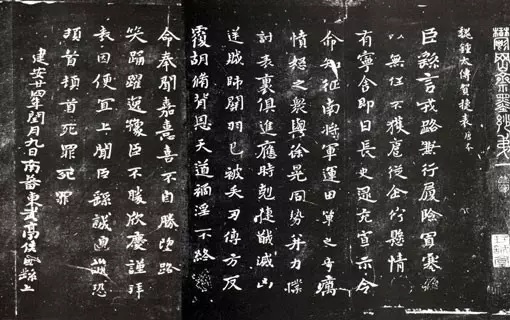 鬱岡齋墨妙
魏鍾太傅賀捷表唐本
臣繇言戎路兼行履險冒寒
以無任不獲扈從企佇懸情
有寧舍即日長史逯充宣示令
命知征南將軍運田單之奇厲
憤怒之衆與徐晃同勢并力撲
討表裏俱進應時剋捷馘滅凶
逆賊帥關羽已被矢刃傅方反
覆胡脩背恩天道禍淫不終
命奉聞嘉憙喜不自勝望路
笑踊躍逸豫臣不勝欣慶謹拜
表因便宜上聞臣繇誠惶誠恐
頓首頓首死罪死罪
建安廿四年閏月九日南蕃東武亭侯臣繇上